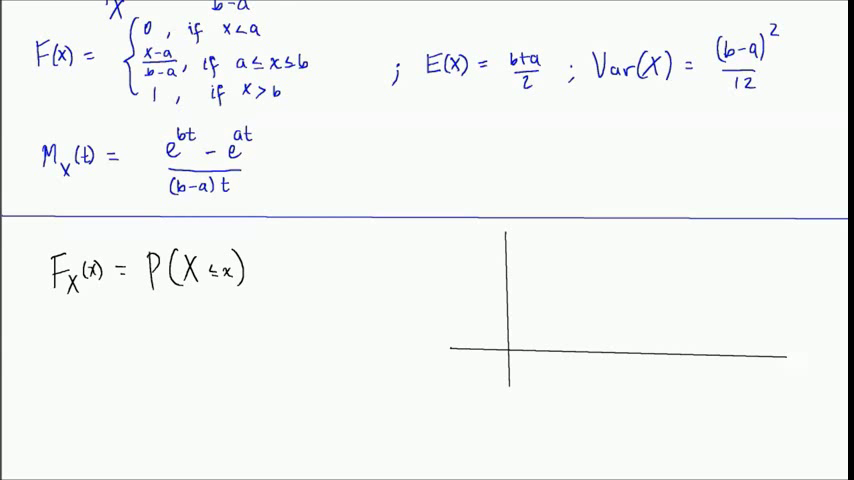 X b-a
F(x) = { 0 , if x<a
x-a/b-a , if a≤x≤b ; E(X) = b+a/2 ; Var(X) = (b-a)²/12
1 , if x>b
M_X(t) = e^bt - e^at/(b-a)t
F_X(x) = P(X≤x)